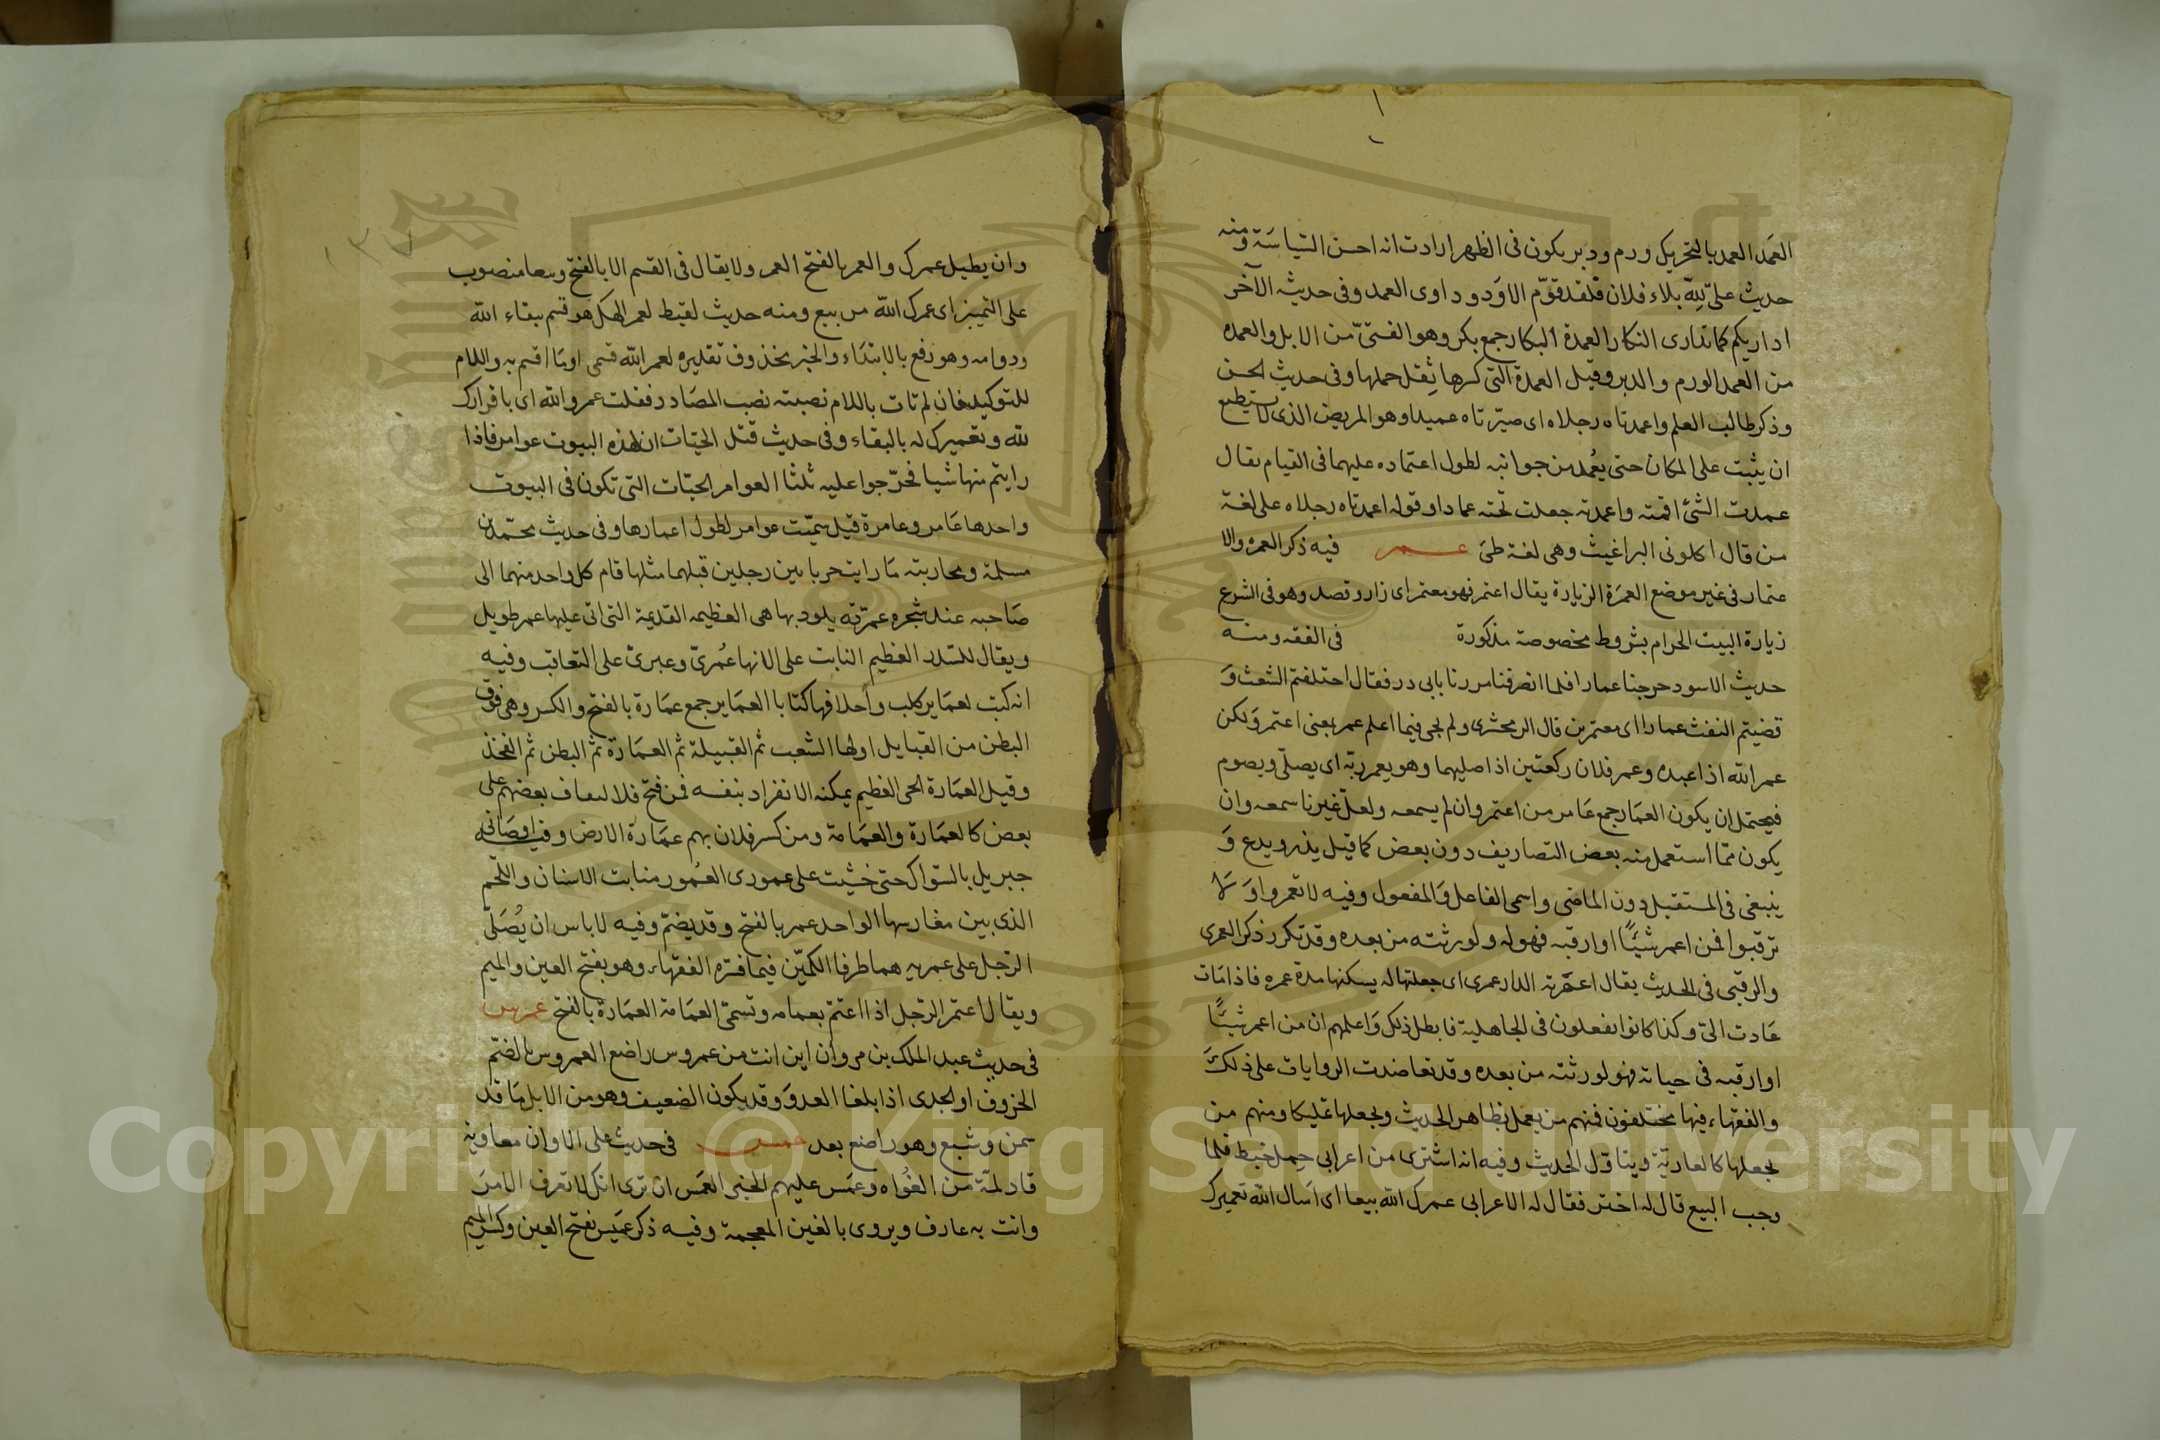 العَمَد العمد بالتحريك ورم ودبر يكون فى الظهر ارادت انه احسن السّياسَة ومنه
حديث علىّ للّه بلاء فلان فلقد قوّم الاوَد وداوى العمد وفى حديثه الآخر
اداريكم كما تدارى البكار العمدة البكار جمع بكر وهو الفتىّ من الابل والعمده
من العمد الورم والدبر وقيل العمدة التى كسرها ثِقل حملها وفى حديث الحسن
وذكر طالب العلم واعمدتاه رجلاه اى صيّرتاه عميدا وهو المريض الذى لا يستطيع
ان يثبت على المكان حتى يعُمد من جوانبه لطول اعتماده عليهما فى القيام يقال
عمدت الشئ اقمته واعمدته جعلت تحته عمادا وقوله اعمدتاه رجلاه على لغة
من قال اكلونى البراغيث وهى لغة طئ عمر فيه ذكر العمرة والا
عتمار فى غير موضع العمرَة الزيارة يقال اعتمر فهو معتمر اى زار وقصد وهو فى الشرع
زيارة البيت الحرام بشروط مخصوصة مذكورة فى الفقه ومنه
حديث الاسود خرجنا عمارا فلما انصرفنا مررنا بابى در فقال احتلقتم الشعث وَ
قضيتم التفث عمارا اى معتمرين قال الزمخشرى ولم يجى فيما اعلم عمر بمعنى اعتمر وَلكن
عمر اللّه اذا عبده وعمر فلان ركعتين اذا صليهما وهو يعمر ربّه اى يصلّى ويصوم
فيحتمل ان يكون العمّار جمع عَامر من اعتمر وان لم يسمعه ولعلّ غيرنا سمعه وان
يكون ممّا استعمل منه بعض التصاريف دون بعض كما قيل يذر ويدع وَ
ينبغى فى المستقبل دون الماضى واسمى الفاعل وَالمفعول وفيه لا تعمروا وَ لا
ترقبوا فمن اعمر شيئًا او ارقبه فهو له ولورثته من بعده وقد تكرر ذكر العمرى
والرقبى فى الحديث يقال اعمَرته الدار عمرى اى جعلتها له يسكنها مدة عمره فاذا مَات
عَادت الىّ وكذا كانوا يفعلون فى الجاهلية فابطل ذلك وَاعلمهم ان من اعمر شيئًا
او ارقبه فى حياته فهو لورثته من بعده وقد تعاضدت الروايات على ذلك
والفقهاء فيها مختلفون فمنهم من يعمل بظاهر الحديث ويجعلها تمليكا ومنهم من
يجعلها كالعاريّة ويتاول الحديث وفيه انه اشترى من اعرابى حِمل خبط فلما
وجب البيع قال له اختر فقال له الاعرابى عمرك اللّه بيعا اى اَسال اللّه تعميرك
وان يطيل عمرك والعمر بالفتح العمر ولا يقال فى القسم الا بالفتح وبيعا منصوب
على التمييز اى عمرك اللّه من بيع ومنه حديث لقيط لعمر الهك هو قسم ببقاء اللّه
ودوامه وهو رفع بالابتداء والخبر محذوف تقديره لعمر اللّه قسمى او مَا اقسم به واللام
للتوكيد فان لم تات باللام نصبته نصب المصَادر فقلت عمر واللّه اى باقرارك
للّه وتعميرك له بالبقاء وفى حديث قتل الحيّات ان لهذه البيوت عوامر فاذا
رايتم منها شيا فحرّجوا عليه ثلثا العوامر الحيّات التى تكون فى البيوت
واحدها عَامر وعامرة قيل سمّيت عوامر لطول اعمارها وفى حديث محمّد بن
مسلمة ومحاربته مَا رايت حربا بين رجلين قبلهما مثلها قام كل واحد منهما الى
صَاحبه عند شجره عمّريّة يلوذ بها هى العظيمه القديمة التى اتى عليها عمر طويل
ويقال للسّدر العظيم النابت على الانها عُمرىّ وعبرىّ على التعاقب وفيه
انه كتب لعمَاير كلب واحلافها كتابا العمَاير جمع عمَارة بالفتح والكسر وهى فوق
البطن من القبايل اولها الشعب ثم القبيلة ثم العمَارة ثمّ البطن ثم الفخذ
وقيل العمَارة الحى العظيم يمكنه الانفراد بنفسه فمن فتح فلالتفاف بعضهم على
بعض كالعمَارة والعمَامة ومن كسر فلان بهم عمَارة الارض وفيه اوصَانى
جبريل بالسّواك حتى خشيت على عمورى العُمُور منابت الاسنان واللّحم
الذى بين مغارسها الواحد عمر بالفتح وقد يضمّ وفيه لاباس ان يُصَلّى
الرّجل على عمريه هما طرفا الكمّين فيما فسّره الفقهاء وهو بفتح العين والميم
ويقال اعتمر الرّجل اذا اعتمّ بعمامه وتسمىّ العمَامة العمَارة بالفتح عمرس
فى حديث عبد الملك بن مروان اين انت من عمروس راضع العمروس بالضمّ
الخروف او الجدى اذا بلغا العدوَ وقد يكون الضعيف وهو من الابل مَا قد
سمن وشبع وهو راضع بعد عمس فى حديث على الا وان معاوية
قاد لمّة من الغُواه وعمَس عليهم الخبر العمَس ان ترى انّك لا تعرف الامرَ
وانت به عارف ويروى بالغين المعجمة وفيه ذكر عمَيس بفتح العين وكسر الميم
Copyright © King Saud University
1957